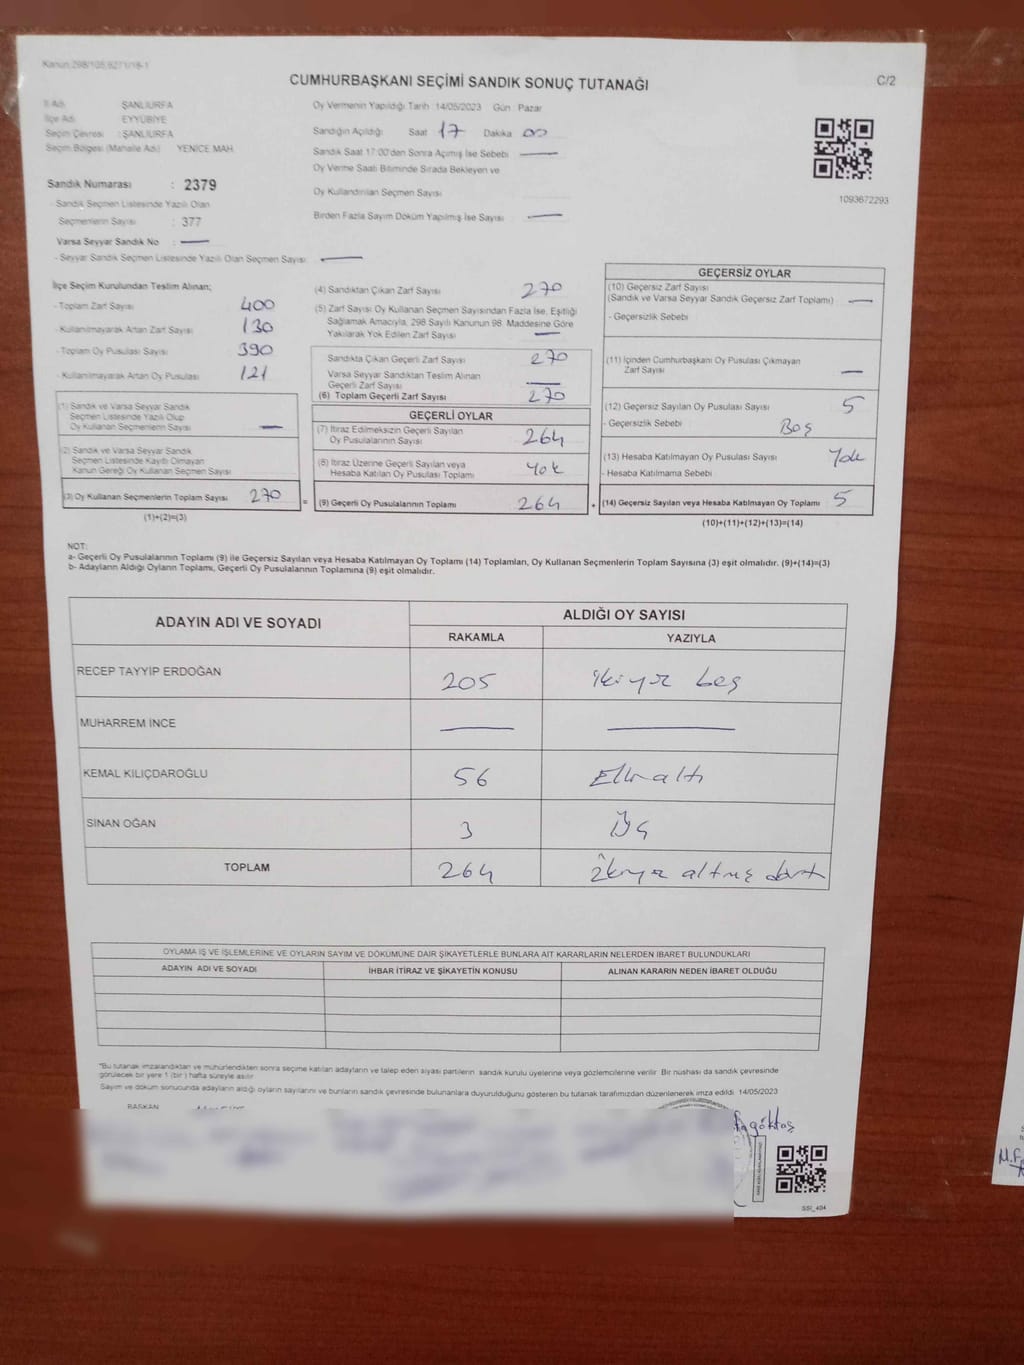 Kanun:298/105,6271/18-1
CUMHURBAŞKANI SEÇİMİ SANDIK SONUÇ TUTANAĞI
C/2
İl Adı ŞANLIURFA
İlçe Adı EYYÜBİYE
Seçim Çevresi : ŞANLIURFA
Seçim Bölgesi (Mahalle Adı) YENİCE MAH.
Oy Vermenin Yapıldığı Tarih :14/05/2023 Gün : Pazar
Sandığın Açıldığı Saat 17 Dakika 00
Sandık Saat 17:00'den Sonra Açımış İse Sebebi —
Oy Verme Saati Bitiminde Sırada Bekleyen ve
Oy Kullandırılan Seçmen Sayısı
Birden Fazla Sayım Döküm Yapılmış İse Sayısı —
1093672293
Sandık Numarası : 2379
- Sandık Seçmen Listesinde Yazılı Olan
Seçmenlerin Sayısı : 377
Varsa Seyyar Sandık No : —
- Seyyar Sandık Seçmen Listesinde Yazılı Olan Seçmen Sayısı —
İlçe Seçim Kurulundan Teslim Alınan;
- Toplam Zarf Sayısı 400
- Kullanılmayarak Artan Zarf Sayısı 130
- Toplam Oy Pusulası Sayısı 390
- Kullanılmayarak Artan Oy Pusulası 121
(1) Sandık ve Varsa Seyyar Sandık
Seçmen Listesinde Yazılı Olup
Oy Kullanan Seçmenlerin Sayısı —
(2) Sandık ve Varsa Seyyar Sandık
Seçmen Listesinde Kayıtlı Olmayan
Kanun Gereği Oy Kullanan Seçmen Sayısı
(3) Oy Kullanan Seçmenlerin Toplam Sayısı 270
(1)+(2)=(3)
(4) Sandıktan Çıkan Zarf Sayısı 270
(5) Zarf Sayısı Oy Kullanan Seçmen Sayısından Fazla İse, Eşitliği
Sağlamak Amacıyla, 298 Sayılı Kanunun 98. Maddesine Göre
Yakılarak Yok Edilen Zarf Sayısı —
Sandıkta Çıkan Geçerli Zarf Sayısı 270
Varsa Seyyar Sandıktan Teslim Alınan
Geçerli Zarf Sayısı —
(6) Toplam Geçerli Zarf Sayısı 270
GEÇERLİ OYLAR
(7) İtiraz Edilmeksizin Geçerli Sayılan
Oy Pusulalarının Sayısı 264
(8) İtiraz Üzerine Geçerli Sayılan veya
Hesaba Katılan Oy Pusulası Toplamı Yok
= (9) Geçerli Oy Pusulalarının Toplamı 264 +
GEÇERSİZ OYLAR
(10) Geçersiz Zarf Sayısı
(Sandık ve Varsa Seyyar Sandık Geçersiz Zarf Toplamı) —
- Geçersizlik Sebebi
(11) İçinden Cumhurbaşkanı Oy Pusulası Çıkmayan
Zarf Sayısı —
(12) Geçersiz Sayılan Oy Pusulası Sayısı 5
- Geçersizlik Sebebi Boş
(13) Hesaba Katılmayan Oy Pusulası Sayısı Yok
- Hesaba Katılmama Sebebi
(14) Geçersiz Sayılan veya Hesaba Katılmayan Oy Toplamı 5
(10)+(11)+(12)+(13)=(14)
NOT:
a- Geçerli Oy Pusulalarının Toplamı (9) ile Geçersiz Sayılan veya Hesaba Katılmayan Oy Toplamı (14) Toplamları, Oy Kullanan Seçmenlerin Toplam Sayısına (3) eşit olmalıdır. (9)+(14)=(3)
b- Adayların Aldığı Oyların Toplamı, Geçerli Oy Pusulalarının Toplamına (9) eşit olmalıdır.
ADAYIN ADI VE SOYADI ALDIĞI OY SAYISI
RAKAMLA YAZIYLA
RECEP TAYYİP ERDOĞAN 205 ikiyüz beş
MUHARREM İNCE — —
KEMAL KILIÇDAROĞLU 56 Elli altı
SİNAN OĞAN 3 Üç
TOPLAM 264 ikiyüz altmış dört
OYLAMA İŞ VE İŞLEMLERİNE VE OYLARIN SAYIM VE DÖKÜMÜNE DAİR ŞİKAYETLERLE BUNLARA AİT KARARLARIN NELERDEN İBARET BULUNDUKLARI
ADAYIN ADI VE SOYADI İHBAR İTİRAZ VE ŞİKAYETİN KONUSU ALINAN KARARIN NEDEN İBARET OLDUĞU
*Bu tutanak imzalandıktan ve mühürlendikten sonra seçime katılan adayların ve talep eden siyasi partilerin sandık kurulu üyelerine veya gözlemcilerine verilir. Bir nüshası da sandık çevresinde
görülecek bir yere 1 (bir) hafta süreyle asılır.
Sayım ve döküm sonucunda adayların aldığı oyların sayılarını ve bunların sandık çevresinde bulunanlara duyurulduğunu gösteren bu tutanak tarafımızdan düzenlenerek imza edildi. 14/05/2023
BAŞKAN
SSI_404